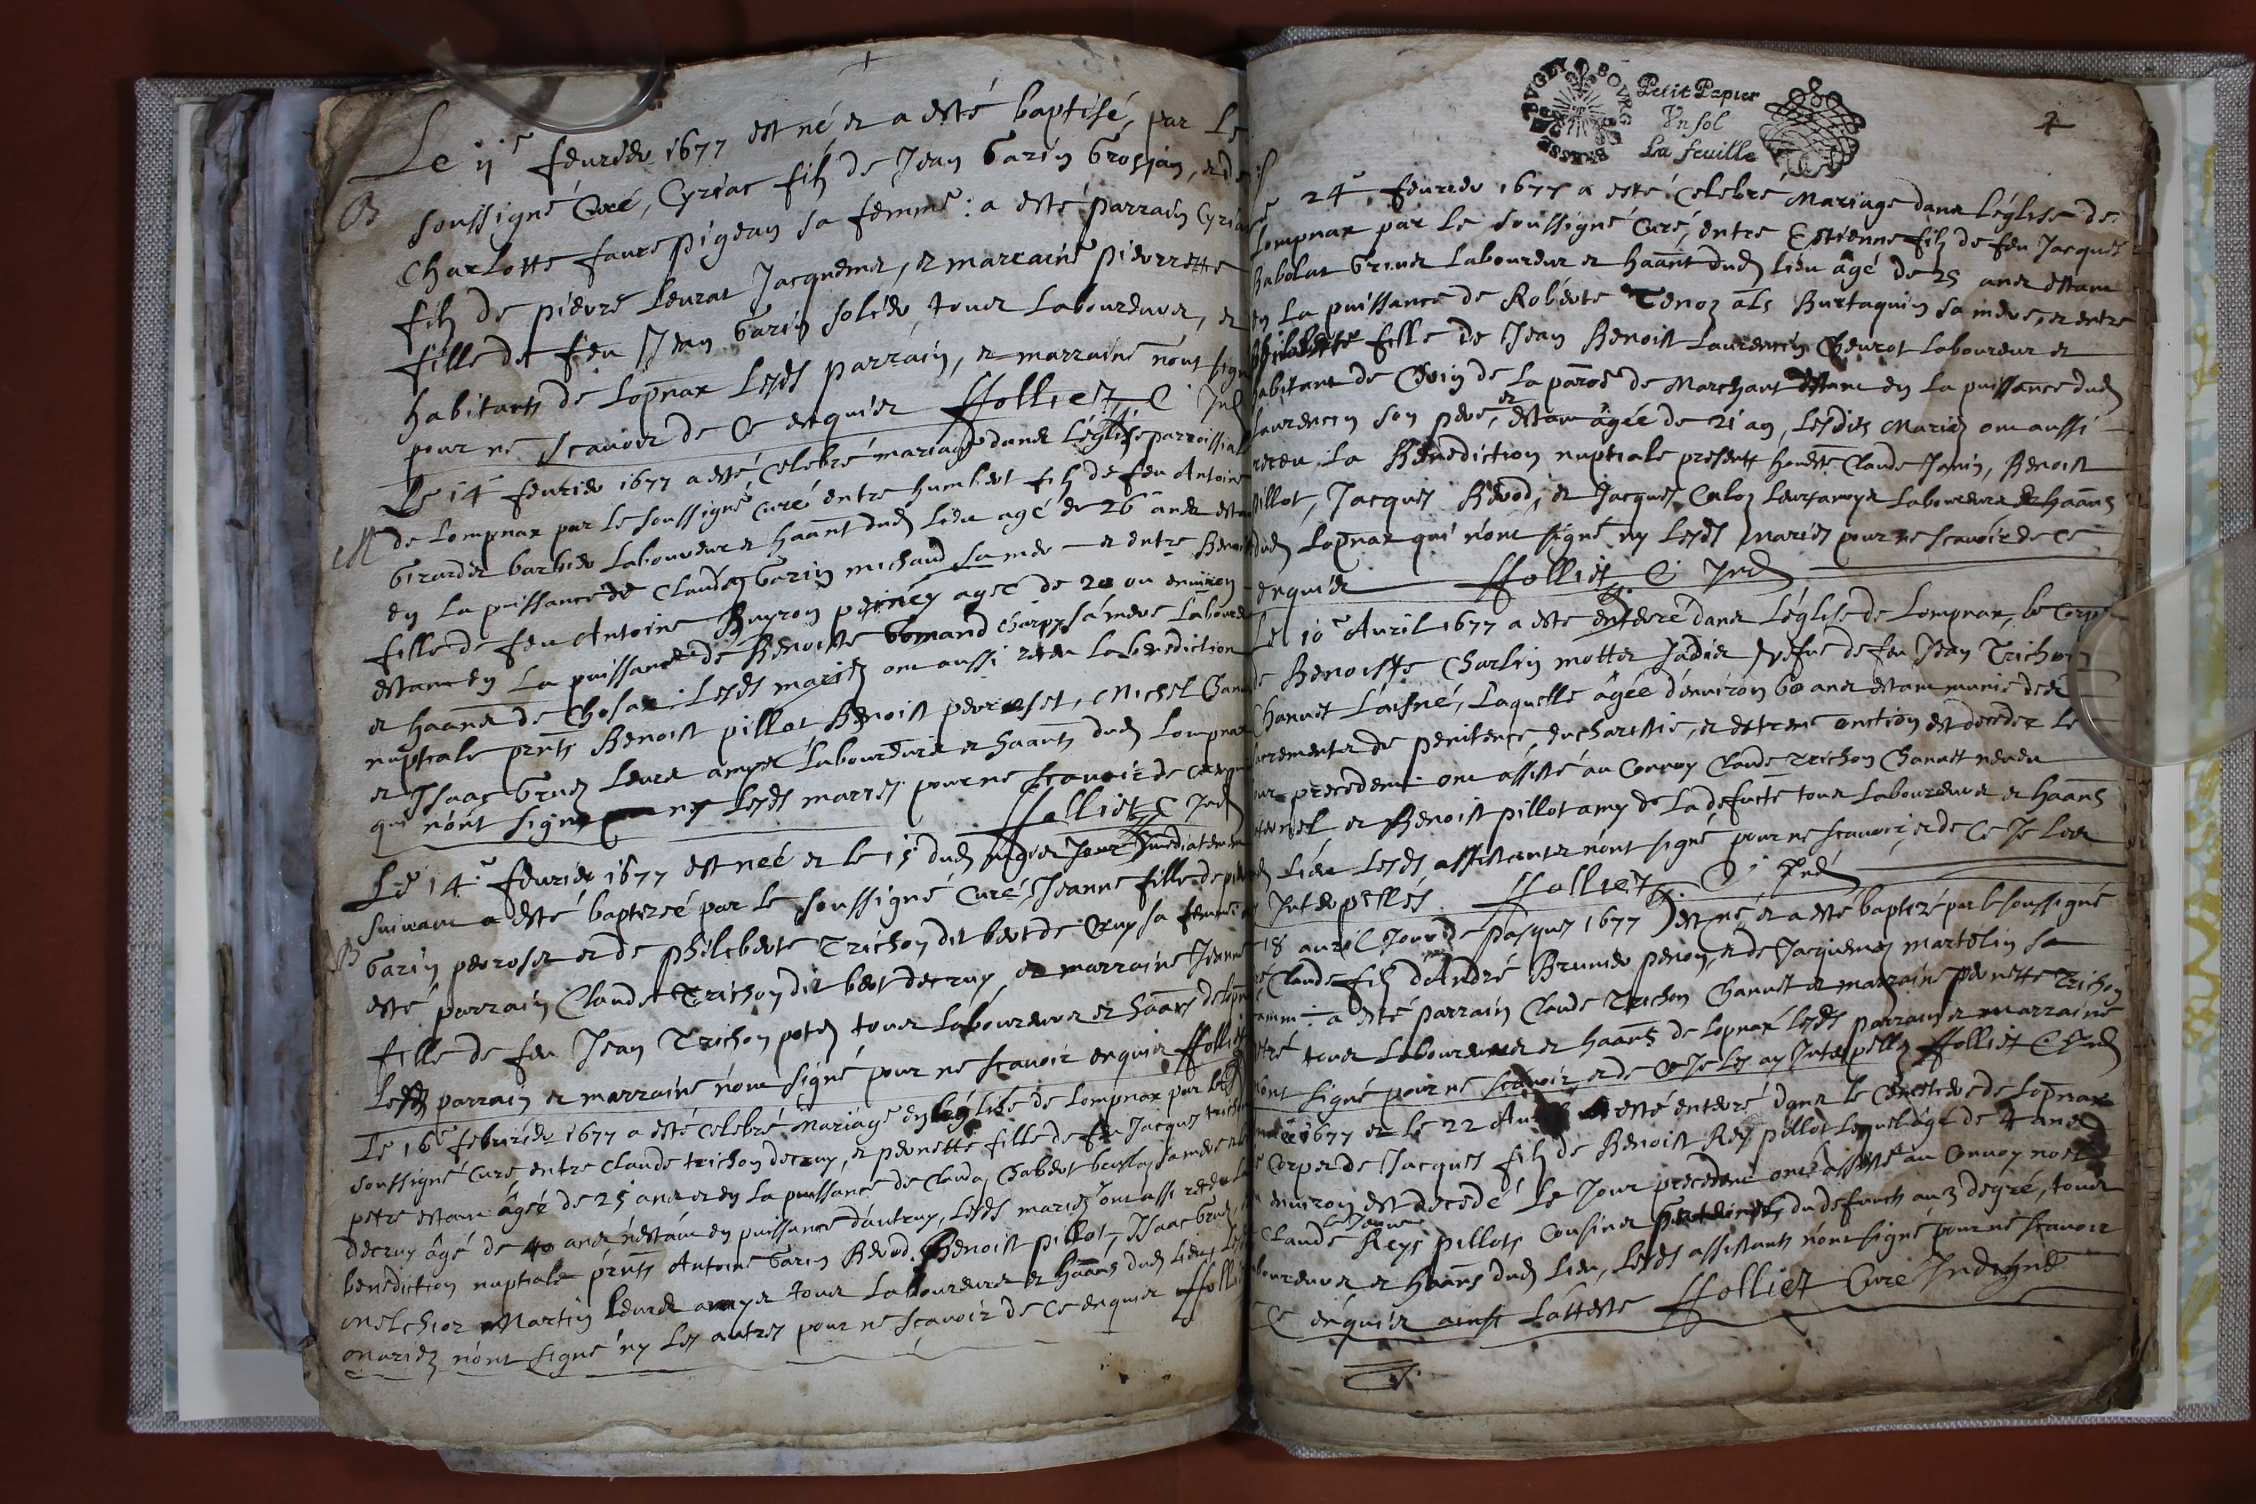 Le 11e feurier 1677 est né et a esté baptisé, par le
soussigné Curé, Cyriac filz de Jean Garin Grosjan, et de
Charlotte faure pigean sa femme: a esté parrain Cyriac
filz de pierre Leurat Jacquemet, et marraine pierrette
fille de feu Jean Garin solier tous Laboureurs, et
habitants de Lopnax Lesds parrain, et marraine n'ont signé
pour ne scauoir de Ce enquier ffolliet C Ind
Le 14e feurier 1677 a esté Celebré mariage dans L'église parroissiale
de Lompnax par Le soussigné Curé entre humbert filz de feu Antoine
Girardet barbier Laboureur et haānt dud Lieu agé de 26 ans estant
en La puissance de Clauda Garin michaud sa mere et entre Benoite
fille de feu Antoine Buyron perney agée de 20 ou enuiron
estant en La puissance de Benoiste Gomand Charpy sa mere Laboureurs
et haānts de Chosax. Lesds mariez ont aussi receu La benediction
nuptiale pnts Benoist pillot Benoist perroset, Michel
et Isaac Gruz Leurs amys Laboureurs et haānts dud Lompnax
qui n'ont signé ny Lesds mariés pour ne scauoir de Ce enquis
ffolliet C Ind
Le 14e feurier 1677 est neé et le 15 dud Jour Immediatement
suiuant a esté baptiseé par le soussigné Curé, Jeanne fille de pierre
Garin peroset et de philiberte Trichon dit bert de Cruy sa femme a
esté parrain Claude Trichon dit bert decruy, et marraine Jeanne
fille de feu Jean Trichon potey tous Laboureurs et haānts de Lopnax
Lesds parrain et marraine n'ont signé pour ne scauoir enquier ffolliet
Le 16e feburier 1677 a esté Celebré Mariage en L'église de Lompnax par le
soussigné Curé, entre Claude trichon decruy, et pernette fille de feu Jacques trichon
petre estant âgée de 25 ans et en La puissance de Clauda Chabert sa mere
decruy âgé de 40 ans n'estant en puissance d'autruy, Lesds mariez ont aussi receu La
benediction nuptiale pnts Antoine Garin Reuod, Benoist pillot, Isaac Gruz,
Melchior Martin Leurs amys tous Laboureurs et haānts dud Lieu, Lesds
mariez n'ont signé ny Les autres pour ne scauoir de Ce enquier ffolliet
Petit Papier
Vn sol
La feuille
24e feurier 1677 a esté Celebré Mariage dans L'église de
Lompnax par Le soussigné Curé, entre Estienne filz de feu Jacques
Babolat Griuet Laboureur et haānt dud Lieu âgé de 25 ans estant
en La puissance de Roberte Tenoz als Burtaquin sa mere, et entre
Philiberte fille de Jean Benoist Laurencin Cheurot Laboureur et
habitant de Choin de La parode de Marchant estant en La puissance dud
Laurencin son pere, et estant âgée de 21 an, Lesdits Mariez ont aussi
receu La Benediction nuptiale presents honeste Claude Janin, Benoist
pillot, Jacques Reuod, et Jacques Caloz Leurs amys Laboureurs et haānts
dud Lopnax qui n'ont signé ny Lesds Mariez pour ne scauoir de Ce
enquier ffolliet C Ind
Le 10e Auril 1677 a esté enterré dans L'église de Lompnax, le Corps
de Benoiste Charlin mottet Jadis vefue de feu Jean Trichon
Chanut L'aisné, Laquelle âgée d'enuiron 60 ans estant munie des
sacrements de penitence, eucharistie, et extreme onction est decedeé Le
jour precedent ont assisté au Conuoy Claude Trichon Chanut neueu
et Benoist pillot amy de La defuncte tous Laboureurs et haānts
dud Lieu Lesds assistants n'ont signé pour ne scauoir, et de Ce Je Les ay
Interpellés ffolliet C Ind
18 auril Jour de pasques 1677 est né et a esté baptizé par le soussigné
Curé Claude filz d'André Brunier peron, et de Jacquemaz martelin sa
femme: a esté parrain Claude Trichon Chanut et marraine pernette Trichon
petre tous Laboureurs et haānts de Lopnax Lesds parrain et marraine
n'ont signé pour ne scauoir, et de Ce Je Les ay Interpellés ffolliet C Ind
1677 et le 22 Auril a esté enterré dans le Cemetiere de Lopnax
le Corps de Jacques filz de Benoist Rey pillot Lequel âgé de 4 ans
ou enuiron est decedé Le Jour precedent ont assisté au Conuoy noel
et Claude le Jeune Reys pillots Cousins du defunct au 3 degré, tous
Laboureurs et haānts dud Lieu, Lesds assistants n'ont signé pour ne scauoir
de Ce enquier ainsi L'atteste ffolliet Curé Indigne